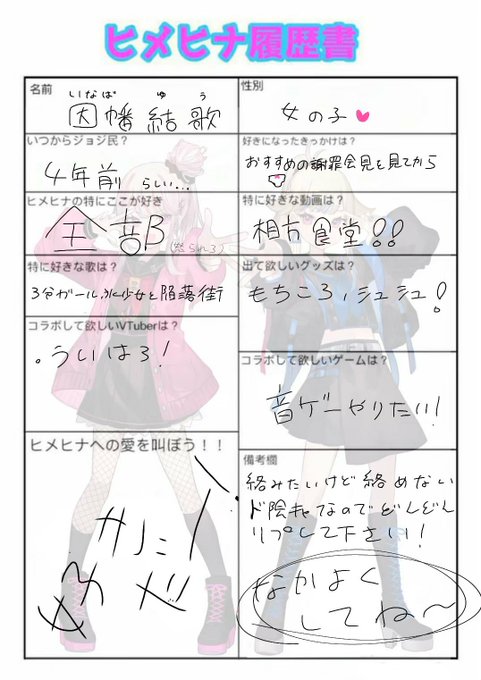 ヒメヒナ履歴書
名前
いなば ゆう
因幡 結歌
性別
女の子♥
いつからジョジ民?
4年前 らしい...
好きになったきっかけは?
おすすめの謝罪会見を見てから
ヒメヒナの特にここが好き
全部(怒られろ)
特に好きな動画は?
相方食堂!!
特に好きな歌は?
3分ガール、水に少女と陥落街
出て欲しいグッズは?
もちころ、シュシュ!
コラボして欲しいVTuberは?
ういはろ!
コラボして欲しいゲームは?
音ゲーやりたい!
ヒメヒナへの愛を叫ぼう!!
備考欄
絡みたいけど絡めない
ド陰キャなのでどんどん
リプして下さい!
なかよく
してね〜